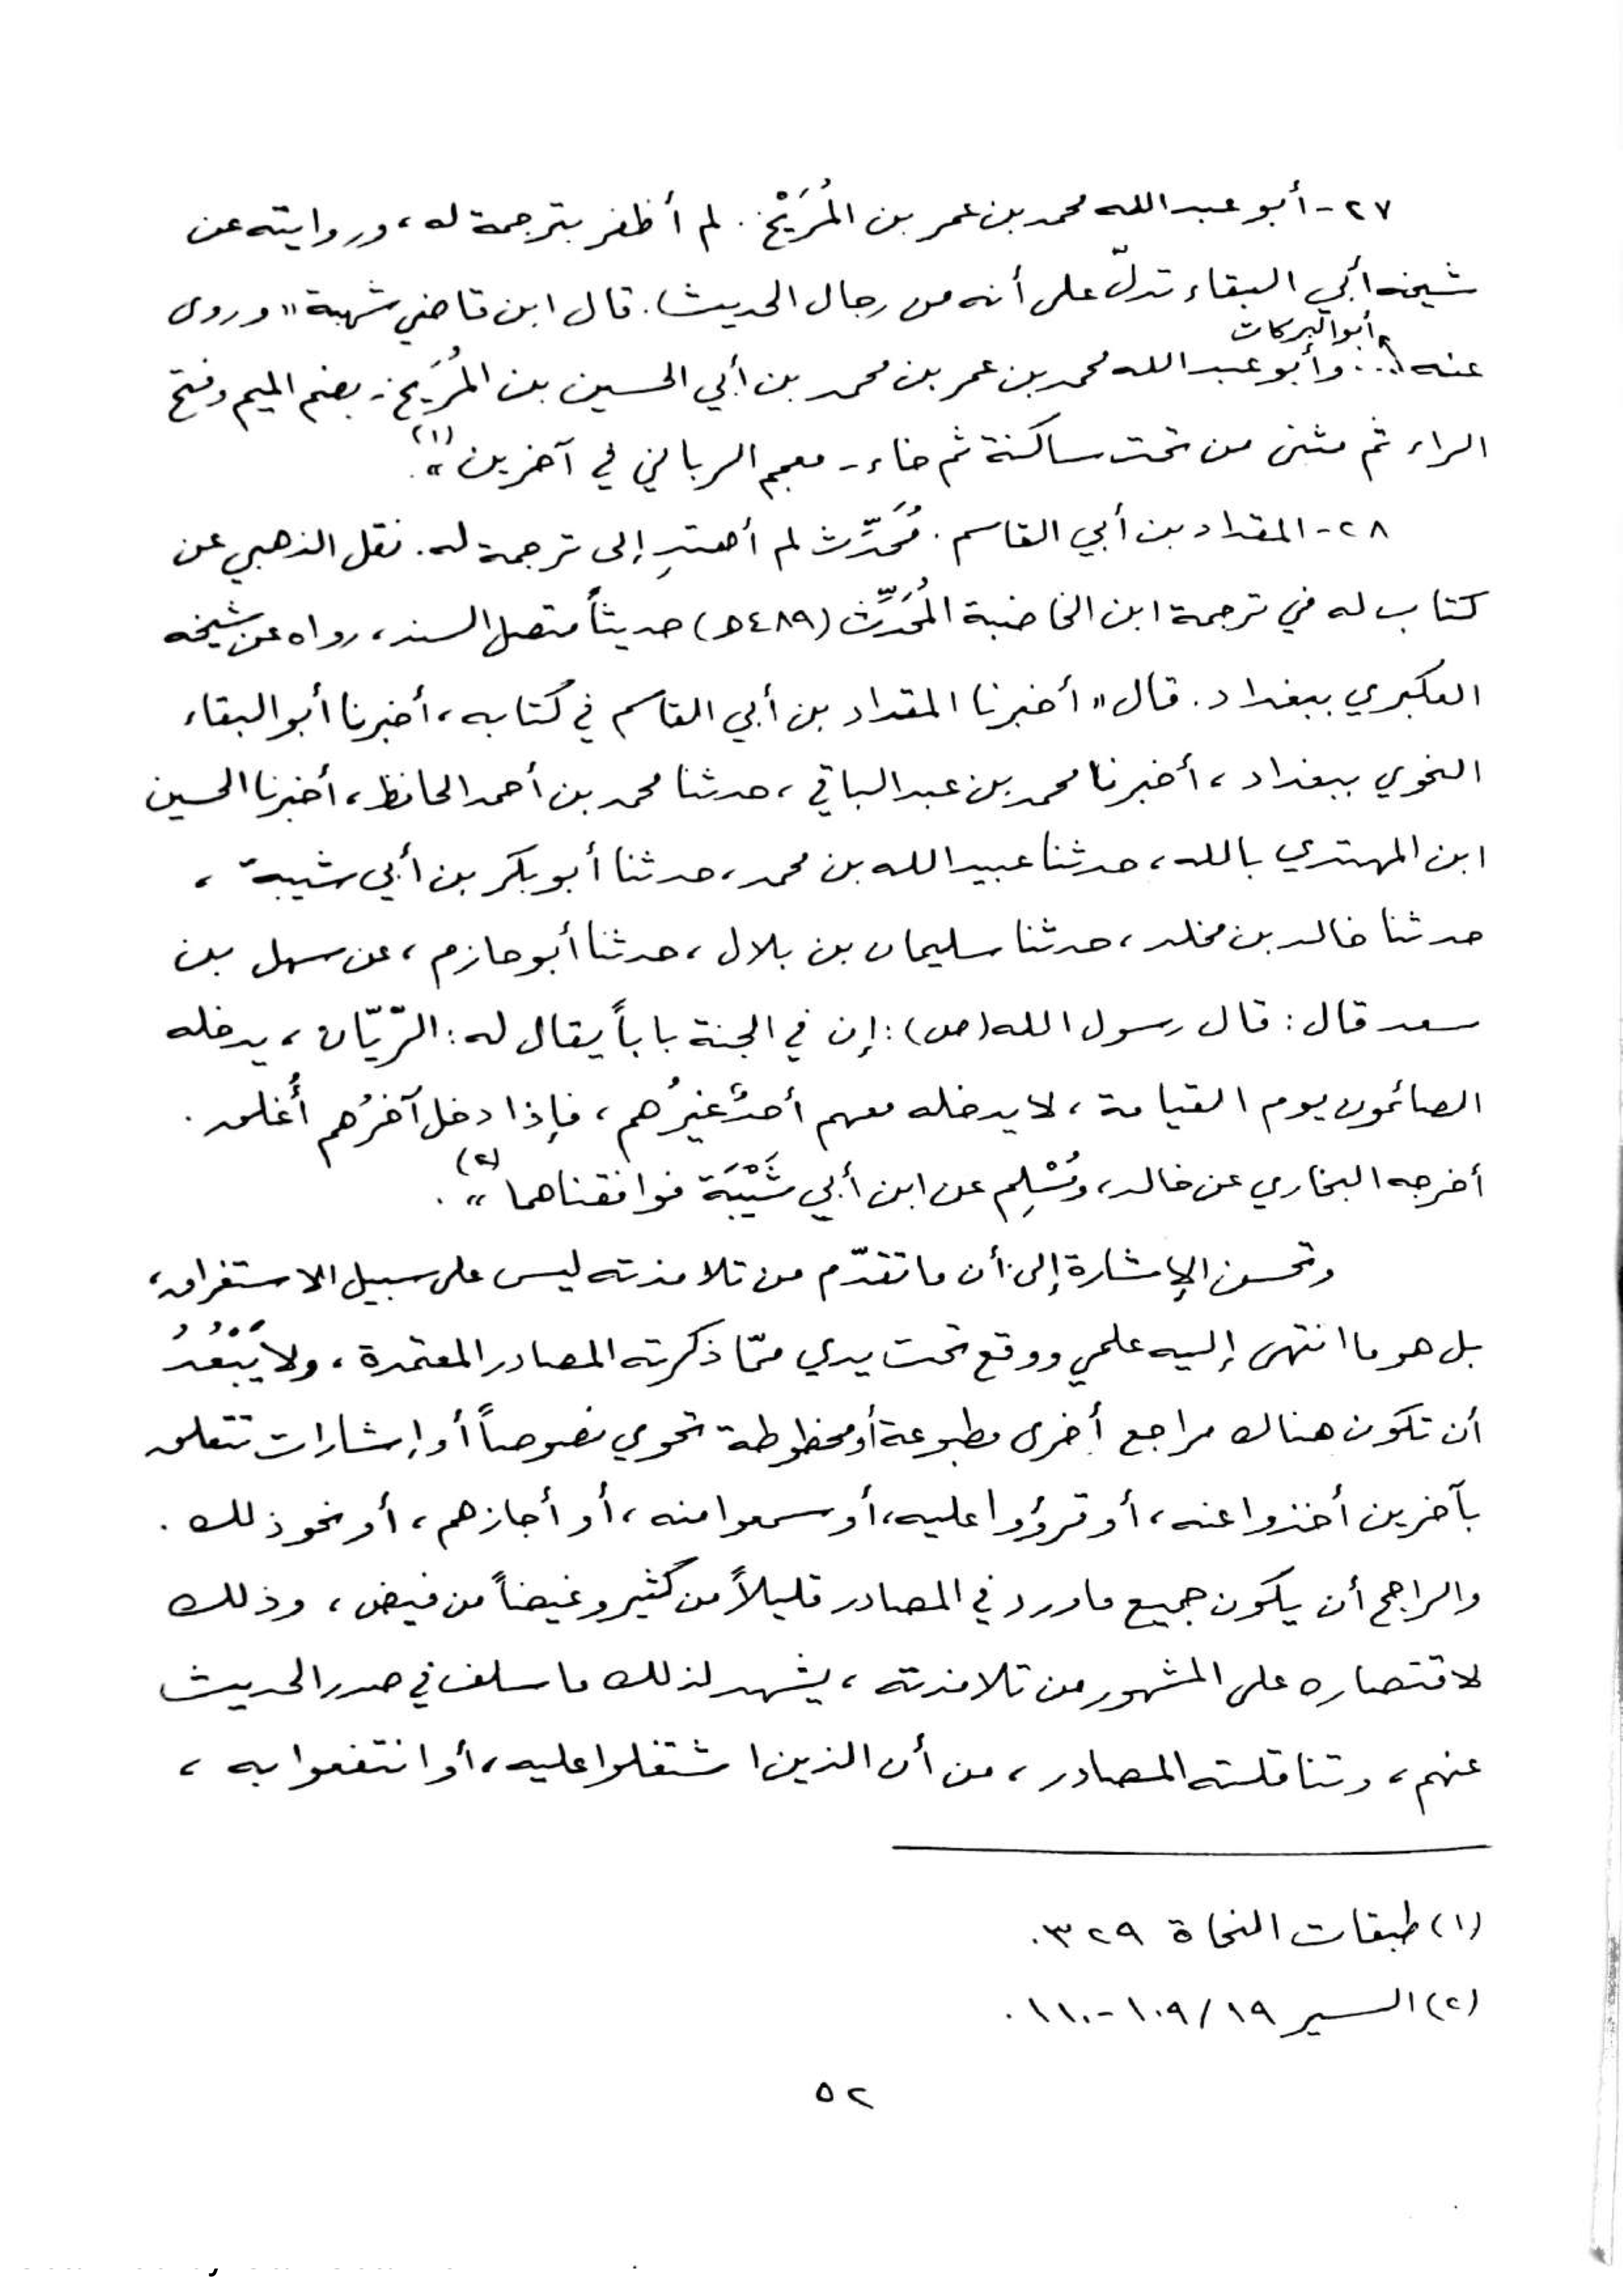 ٢٧- أبو عبد الله محمد بن عمر بن المُرَيْخ. لم أظفر بترجمة له، وروايته عن
شيخه أبي البقاء تدلّ على أنه من رجال الحديث. قال ابن قاضي شهبة "وروى
أبو البركات
عنه ... وأبو عبد الله محمد بن عمر بن محمد بن أبي الحسين بن المُرَيخ - بضم الميم وفتح
الراء ثم مثنى من تحت ساكنة ثم خاء - معجم الرباني في آخرين"(١).
٢٨- المقداد بن أبي القاسم. مُحَدِّث لم أهتدِ إلى ترجمة له. نقل الذهبي عن
كتاب له في ترجمة ابن الخاضبة المُحَدِّث (٤٨٩ه) حديثاً متصل السند، رواه عن شيخه
العكبري ببغداد. قال "أخبرنا المقداد بن أبي القاسم في كتابه، أخبرنا أبو البقاء
النحوي ببغداد، أخبرنا محمد بن عبد الباقي، حدثنا محمد بن أحمد الحافظ، أخبرنا الحسين
ابن المهتدي بالله، حدثنا عبيد الله بن محمد، حدثنا أبو بكر بن أبي شيبة،
حدثنا خالد بن مخلد، حدثنا سليمان بن بلال، حدثنا أبو حازم، عن سهل بن
سعد قال: قال رسول الله (ص): إن في الجنة باباً يقال له: الرّيّان، يدخله
الصائمون يوم القيامة، لا يدخله معهم أحدٌ غيرُهم، فإذا دخل آخرُهم أُغلق.
أخرجه البخاري عن خالد، ومُسْلِم عن ابن أبي شَيْبَة فوافقناهما"(٢).
وتحسن الإشارة إلى أن ما تقدّم من تلامذته ليس على سبيل الاستغراق،
بل هو ما انتهى إليه علمي ووقع تحت يدي ممّا ذكرته المصادر المعتمدة، ولا يَبْعُدُ
أن تكون هناك مراجع أخرى مطبوعة أو مخطوطة تحوي نصوصاً أو إشارات تتعلق
بآخرين أخذوا عنه، أو قرؤوا عليه، أو سمعوا منه، أو أجازهم، أو نحو ذلك.
والراجح أن يكون جميع ما ورد في المصادر قليلاً من كثير وغيضاً من فيض، وذلك
لاقتصاره على المشهور من تلامذته، يشهد لذلك ما سلف في صدر الحديث
عنهم، وتناقلته المصادر، من أن الذين اشتغلوا عليه، أو انتفعوا به،
(١) طبقات النحاة ٣٢٩.
(٢) السير ١٩/ ١٠٩-١١٠.
٥٢